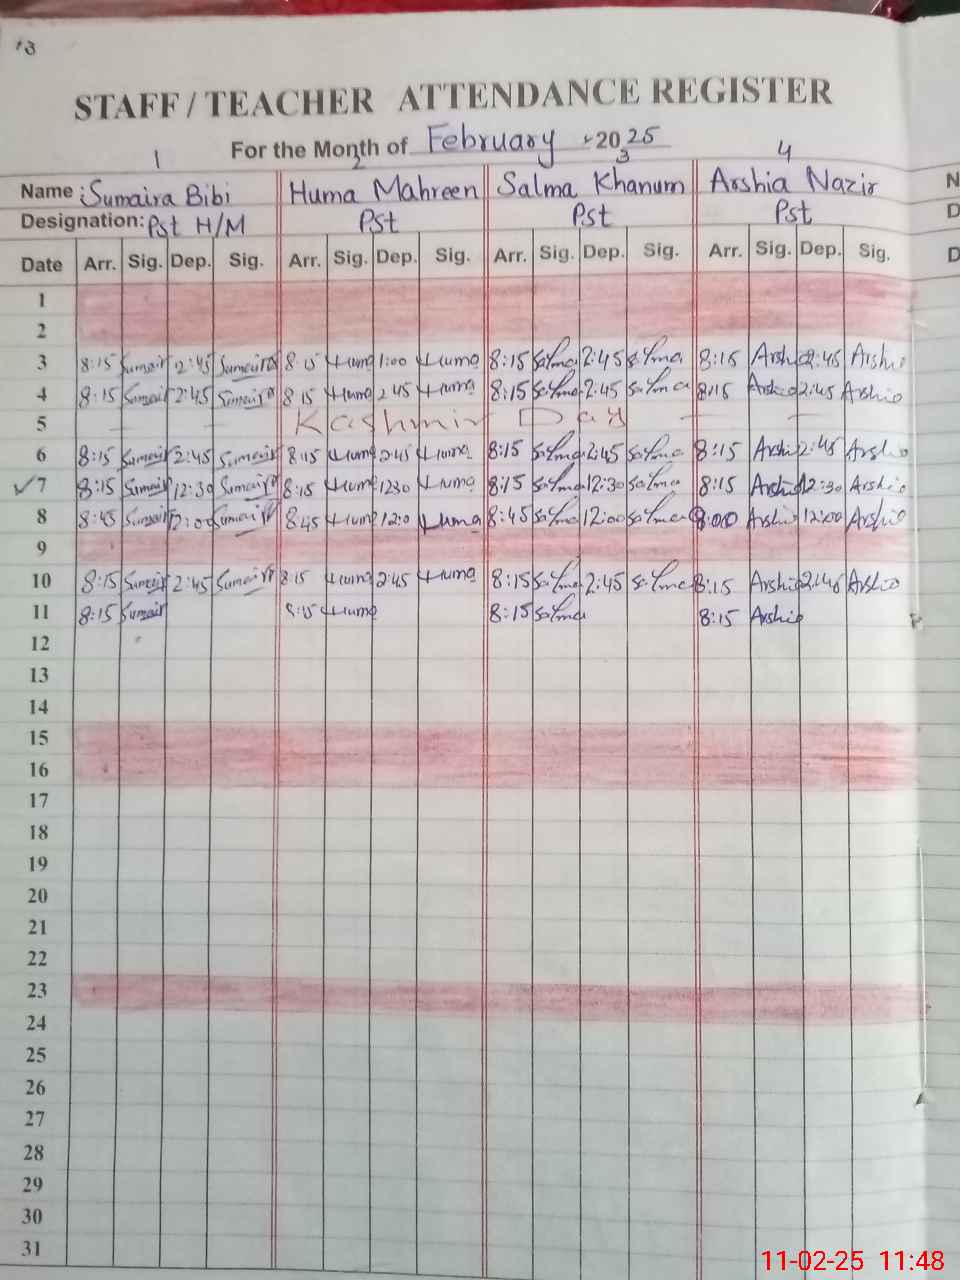 13
STAFF / TEACHER ATTENDANCE REGISTER
For the Month of February 2025
1 2 3 4
Name : Sumaira Bibi Huma Mahreen Salma Khanum Arshia Nazir N
Designation: Pst H/M Pst Pst Pst D
Date Arr. Sig. Dep. Sig. Arr. Sig. Dep. Sig. Arr. Sig. Dep. Sig. Arr. Sig. Dep. Sig. D
1
2
3 8:15 Sumair 2:45 Sumaira 8 15 Huma 1:00 Huma 8:15 Salma 2:45 Salma 8:15 Arshia 2:45 Arshia
4 8:15 Sumair 2:45 Sumaira 8 15 Huma 2 45 Huma 8:15 Salma 2:45 Salma 8:15 Arshia 2:45 Arshia
5 Kashmir Day
6 8:15 Sumair 2:45 Sumaira 8:15 Huma 2:45 Huma 8:15 Salma 2:45 Salma 8:15 Arshia 2:45 Arshia
7 8:15 Sumair 12:30 Sumaira 8:15 Huma 1230 Huma 8:15 Salma 12:30 Salma 8:15 Arshia 12:30 Arshia
8 8:45 Sumair 12:00 Sumaira 8:45 Huma 12:0 Huma 8:45 Salma 12:00 Salma 8:00 Arshia 12:00 Arshia
9
10 8:15 Sumair 2:45 Sumaira 8:15 Huma 2:45 Huma 8:15 Salma 2:45 Salma 8:15 Arshia 2:45 Arshia
11 8:15 Sumair 8:15 Huma 8:15 Salma 8:15 Arshia
12
13
14
15
16
17
18
19
20
21
22
23
24
25
26
27
28
29
30
31
11-02-25 11:48